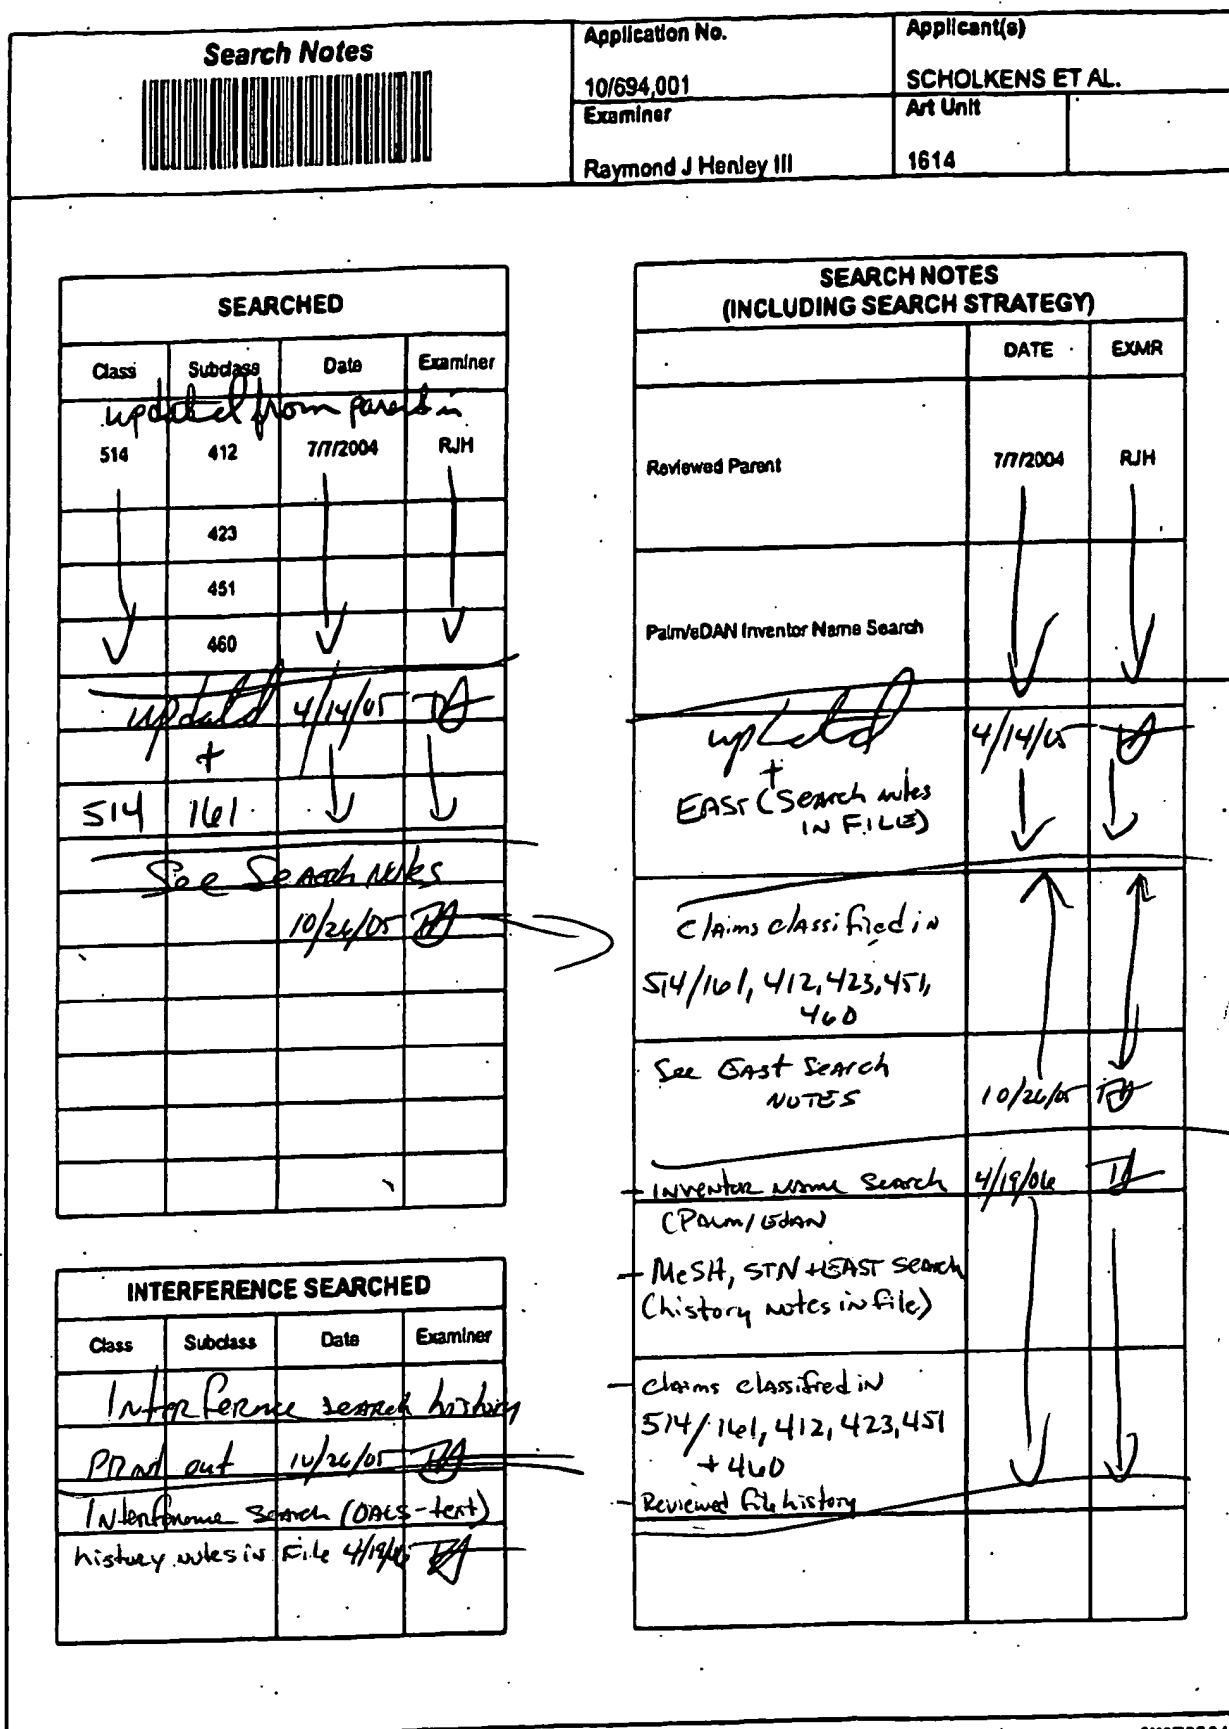 Search Notes
Application No.
10/694,001
Applicant(s)
SCHOLKENS ET AL.
Examiner
Raymond J Henley III
Art Unit
1614
SEARCHED
Class Subclass Date Examiner
updated from parent in
514 412 7/7/2004 RJH
423
451
460
updated 4/14/05
+
514 161
See Search Notes
10/26/05
INTERFERENCE SEARCHED
Class Subclass Date Examiner
Interference search history
Print out 10/26/05
Interference search (OACS-text)
history notes in File 4/19/06
SEARCH NOTES
(INCLUDING SEARCH STRATEGY)
DATE EXMR
Reviewed Parent 7/7/2004 RJH
Palm/eDAN Inventor Name Search
updated 4/14/05
+
EAST (Search notes
IN FILE)
Claims classified in
514/161, 412, 423, 451,
460
See EAST Search
NOTES 10/26/05
- Inventor Name Search 4/19/06
(Palm/eDAN)
- MeSH, STN + EAST search
(history notes in file)
- claims classified in
514/161, 412, 423, 451
+ 460
- Reviewed file history